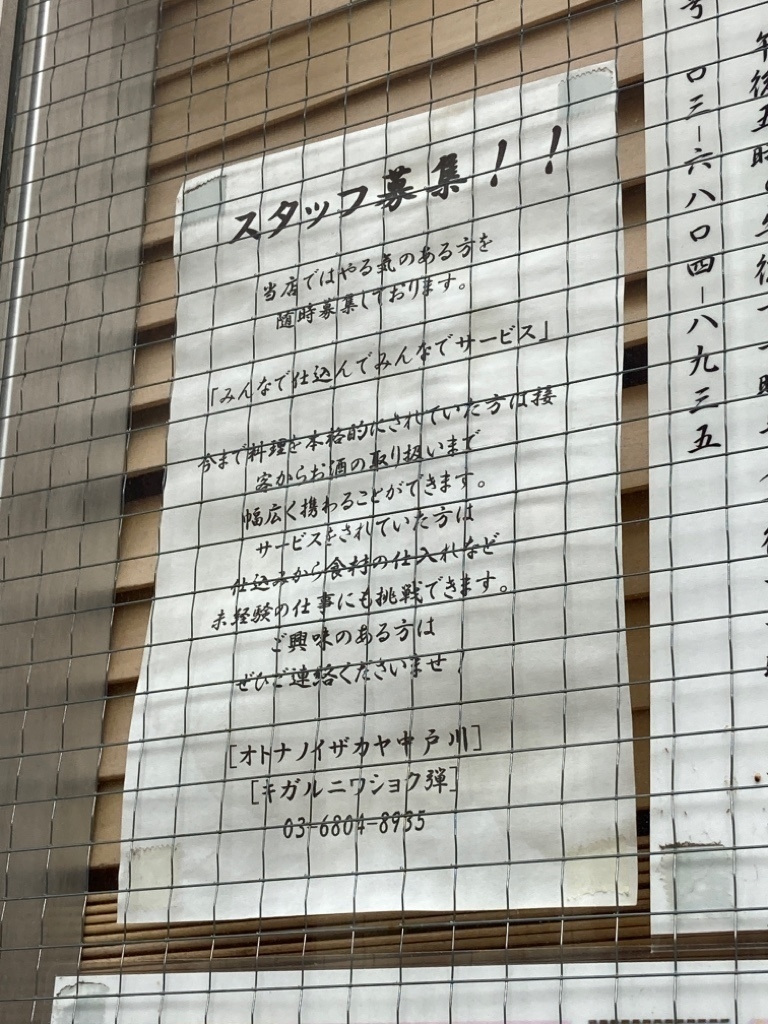 スタッフ募集！！
当店ではやる気のある方を
随時募集しております。
「みんなで仕込んでみんなでサービス」
今まで料理を本格的にされていた方は接
客からお酒の取り扱いまで
幅広く携わることができます。
サービスをされていた方は
仕込みから食材の仕入れなど
未経験の仕事にも挑戦できます。
ご興味のある方は
ぜひご連絡くださいませ！
[オトナノイザカヤ中戸川]
[キガルニワショク弾]
03-6804-8935
午後五時
号 〇三-六八〇四-八九三五